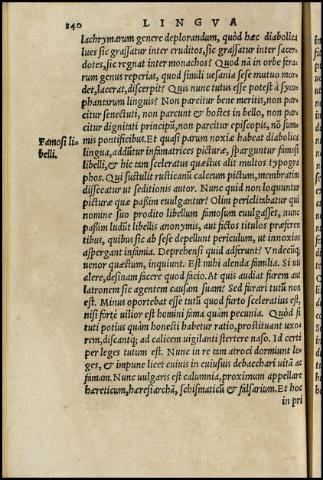 140 LINGVA
lachrymarum genere deplorandum, quòd hæc diabolica
lues sic grassatur inter eruditos, sic grassatur inter sacer-
dotes, sic regnat inter monachos! Quod nã in orbe fera-
rum genus reperias, quod simili uesania sese mutuo mor-
det, lacerat, discerpit? Quis nunc tutus esse potest à syco-
phantarum linguis? Non parcitur bene meritis, non par-
citur senectuti, non parcunt & hostes in bello, non par-
citur dignitati principũ, non parcitur episcopis, nõ sum-
Famosi li-
belli.
mis pontificibus. Et quasi parum noxiæ habeat diabolica
lingua, addũtur infamatrices picturæ, sparguntur famosi
libelli, & hic tam sceleratus quæstus alit multos typogra
phos. Qui sustulit rusticanũ calceum pictum, membratim
dissecatur ut seditionis autor. Nunc quid non loquuntur
picturæ quæ passim euulgantur? Olim periclitabatur qui
nomine suo prodito libellum famosum euulgasset, nunc
passim ludũt libellis anonymis, aut fictos titulos præferen
tibus, quibus sic ab sese depellunt periculum, ut innoxios
aspergant infamia. Deprehensi quid adferunt? Vndecũq;
uenor quæstum, inquiunt. Est mihi alenda familia. Si uis
alere, desinam facere quod facio. At quis audiat furem aut
latronem sic agentem causam suam? Sed furari tutũ non
est. Minus oportebat esse tutũ quod furto sceleratius est,
nisi fortè uilior est homini fama quàm pecunia. Quòd si
tuti potius quàm honesti habetur ratio, prostituant uxo-
rem, discantq; ad calicem uigilanti stertere naso. Id certè
per leges tutum est. Nunc in re tam atroci dormiunt le-
ges, & impune licet cuiuis in cuiusuis debacchari uitã ac
famam. Nunc uulgaris est calumnia, proximum appellare
hæreticum, hæresiarchã, schismaticũ & falsarium. Et hoc
in pri